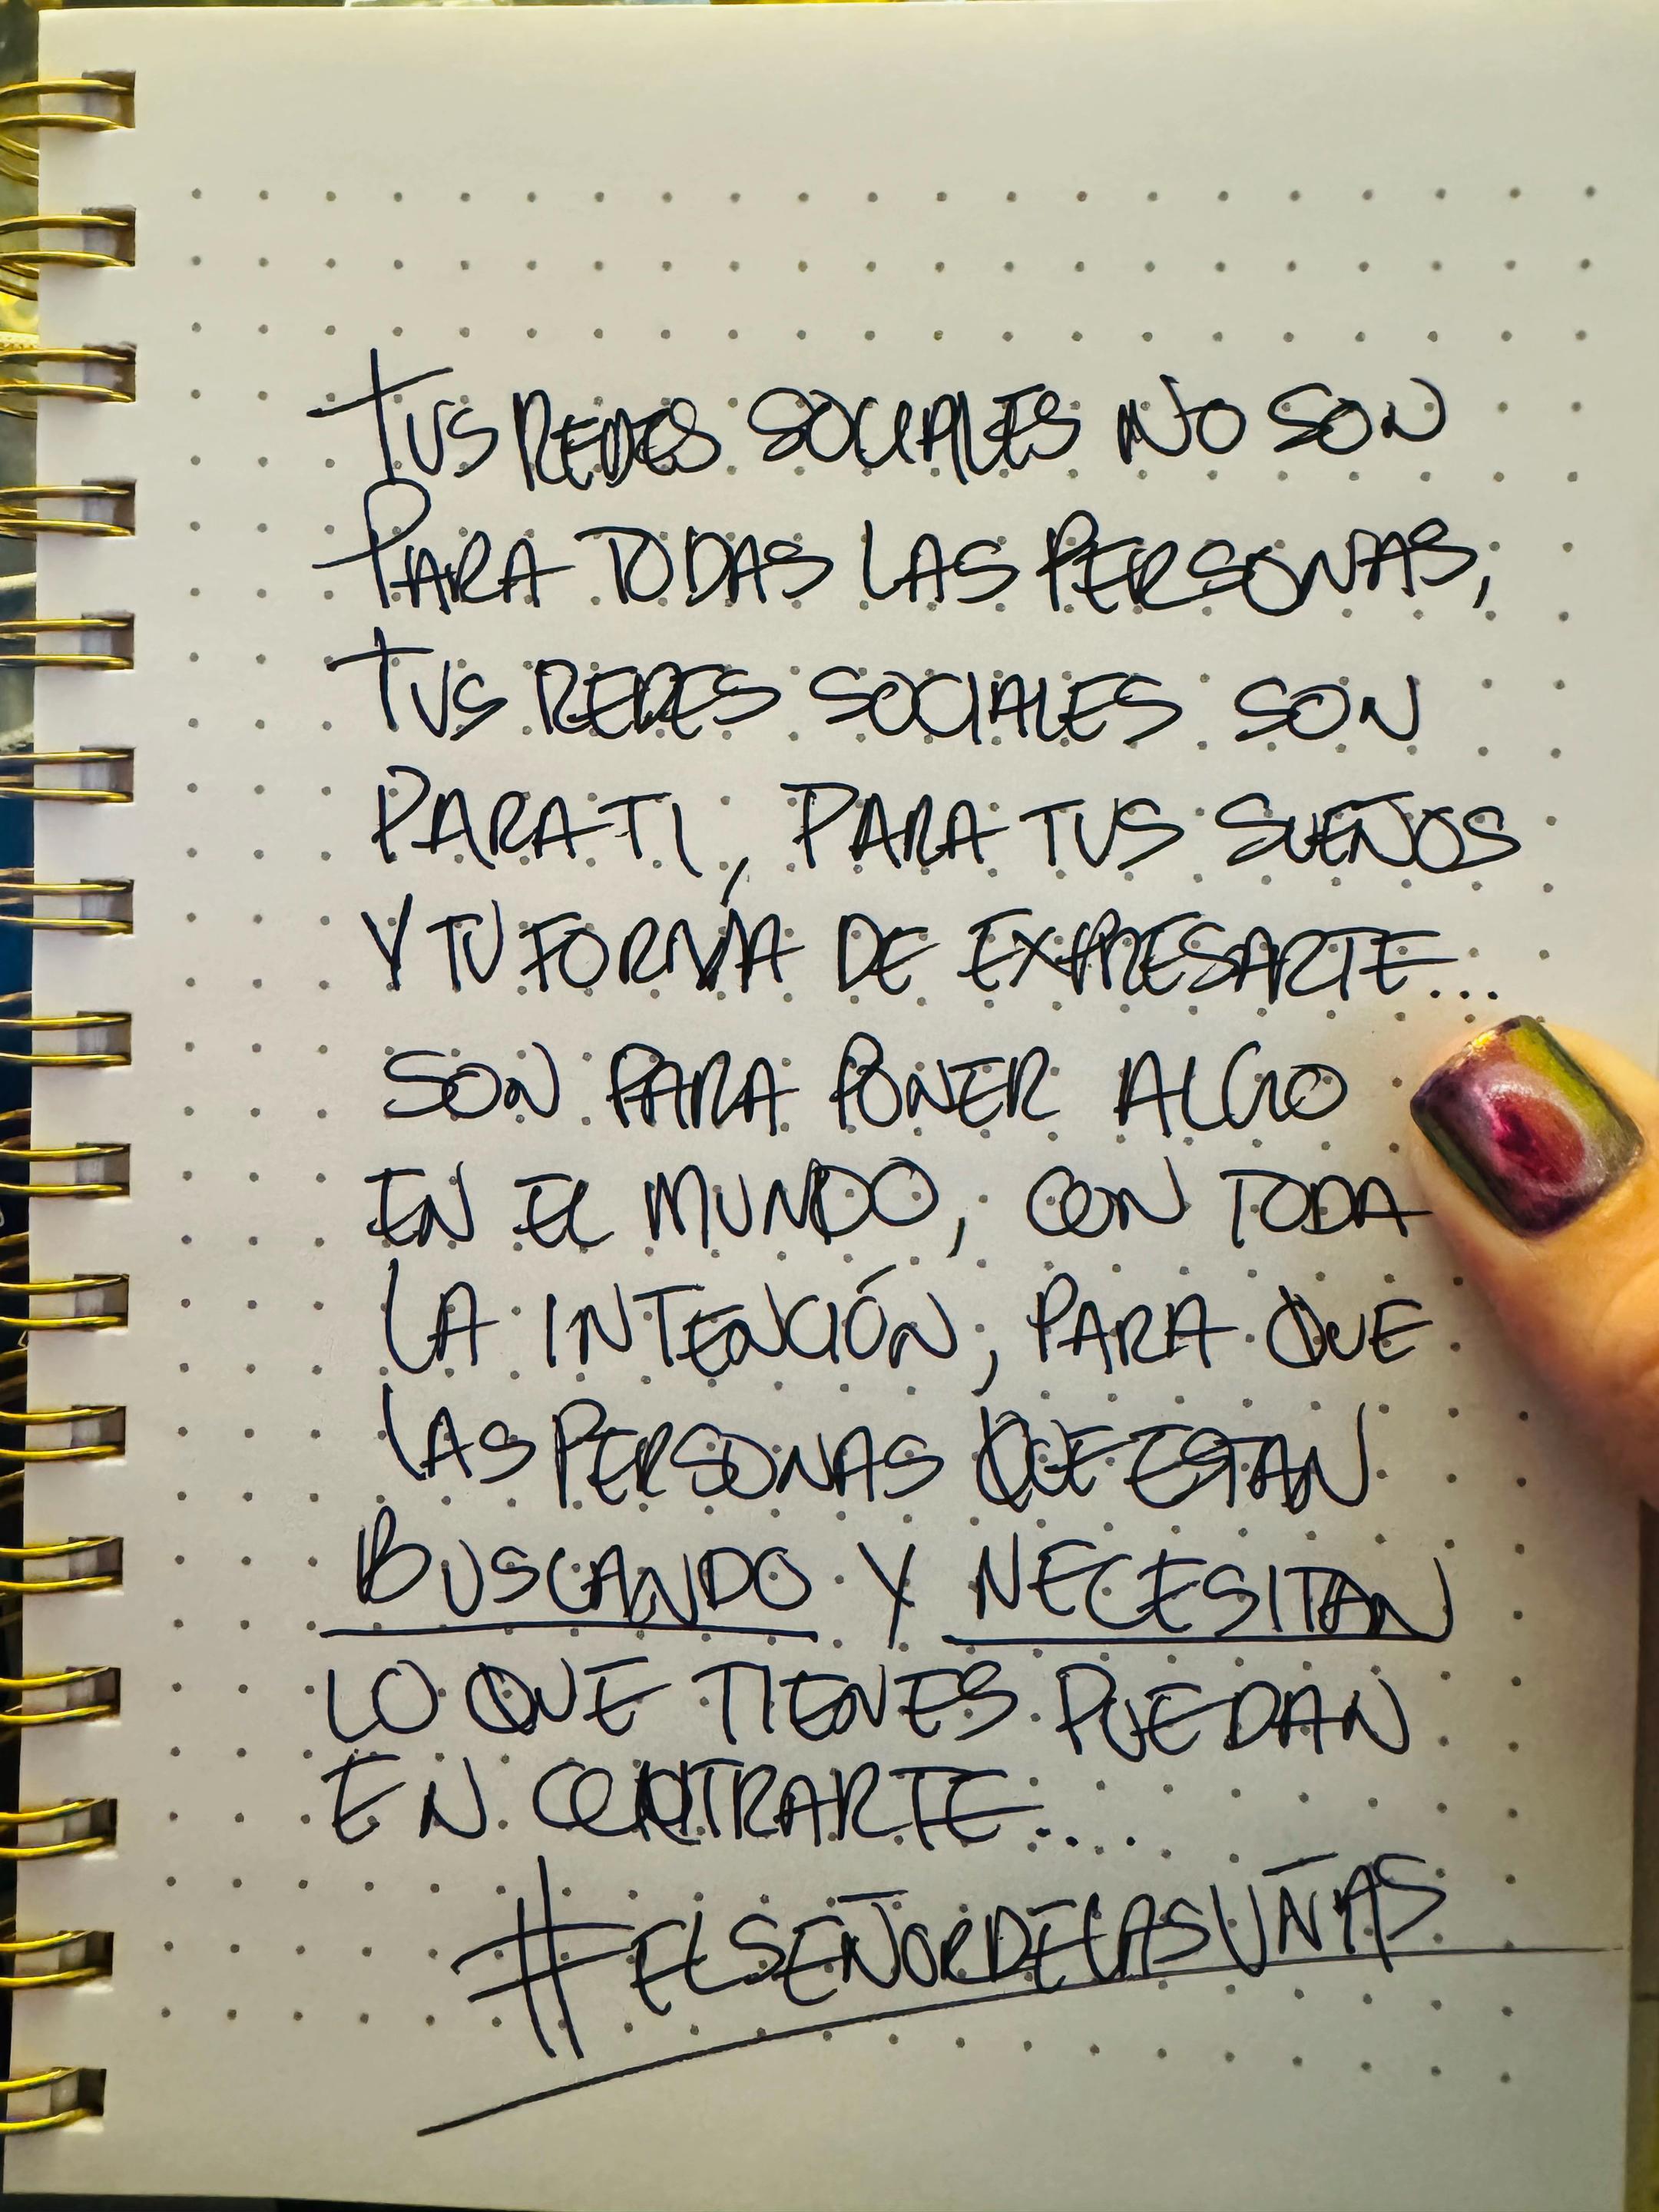 TUS REDES SOCIALES NO SON
PARA TODAS LAS PERSONAS,
TUS REDES SOCIALES SON
PARA TI, PARA TUS SUEÑOS
Y TU FORMA DE EXPRESARTE...
SON PARA PONER ALGO
EN EL MUNDO, CON TODA
LA INTENCIÓN, PARA QUE
LAS PERSONAS QUE ESTAN
BUSCANDO Y NECESITAN
LO QUE TIENES PUEDAN
ENCONTRARTE...
#ELSEÑORDELASUÑAS